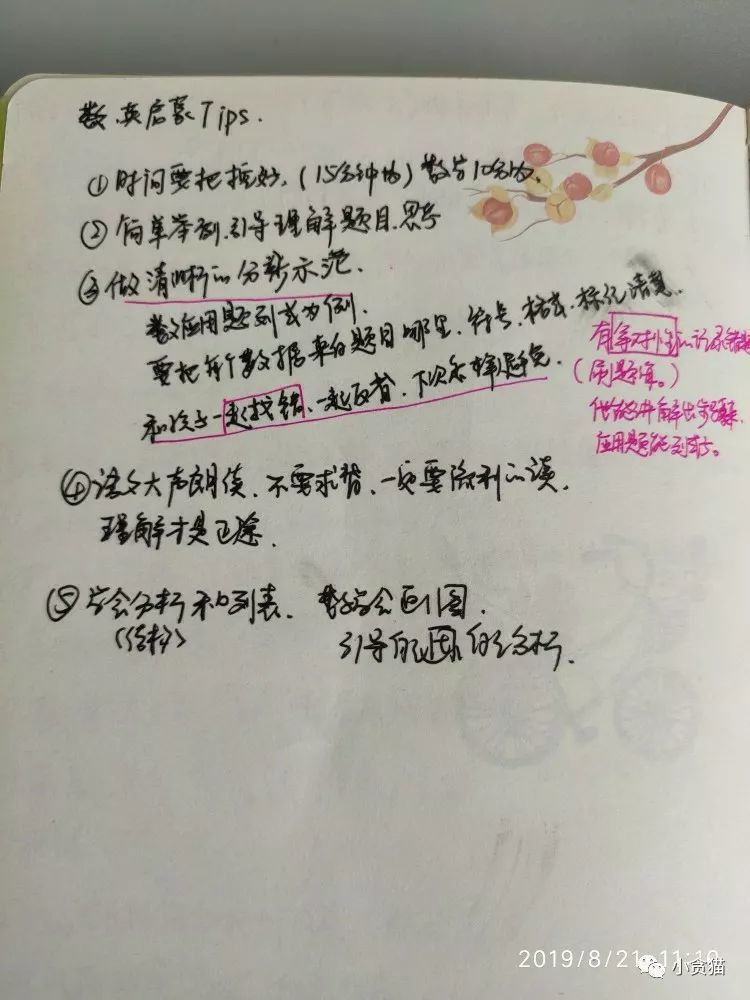 数、英启蒙Tips.
①时间要把握好、(15分钟内)数学10分内、
②简单举例.引导理解题目.思考
③做清晰的分析示范.
数应用题列式为例.
要把每个数据来自题目哪里、符号、格式、标记清楚.
和孩子一起找错、一起反省、下次怎样避免.
有针对性的记录错题
(刷题库。)
应用题能列式。
④语文大声朗读、不要求背、一定要流利的读、
理解才是正途.
⑤学会分析和列表、数学会画图.
引导的 的分析.
2019/8/21 11:10
小贪猫